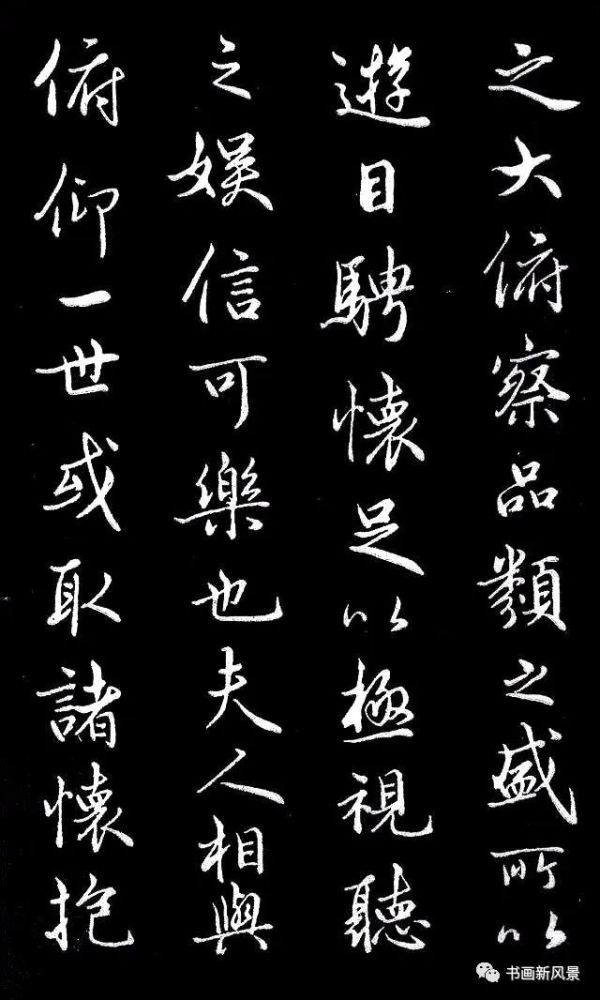 之大俯察品類之盛所以
遊目騁懷足以極視聽
之娱信可樂也夫人相與
俯仰一世或取諸懷抱
书画新风景